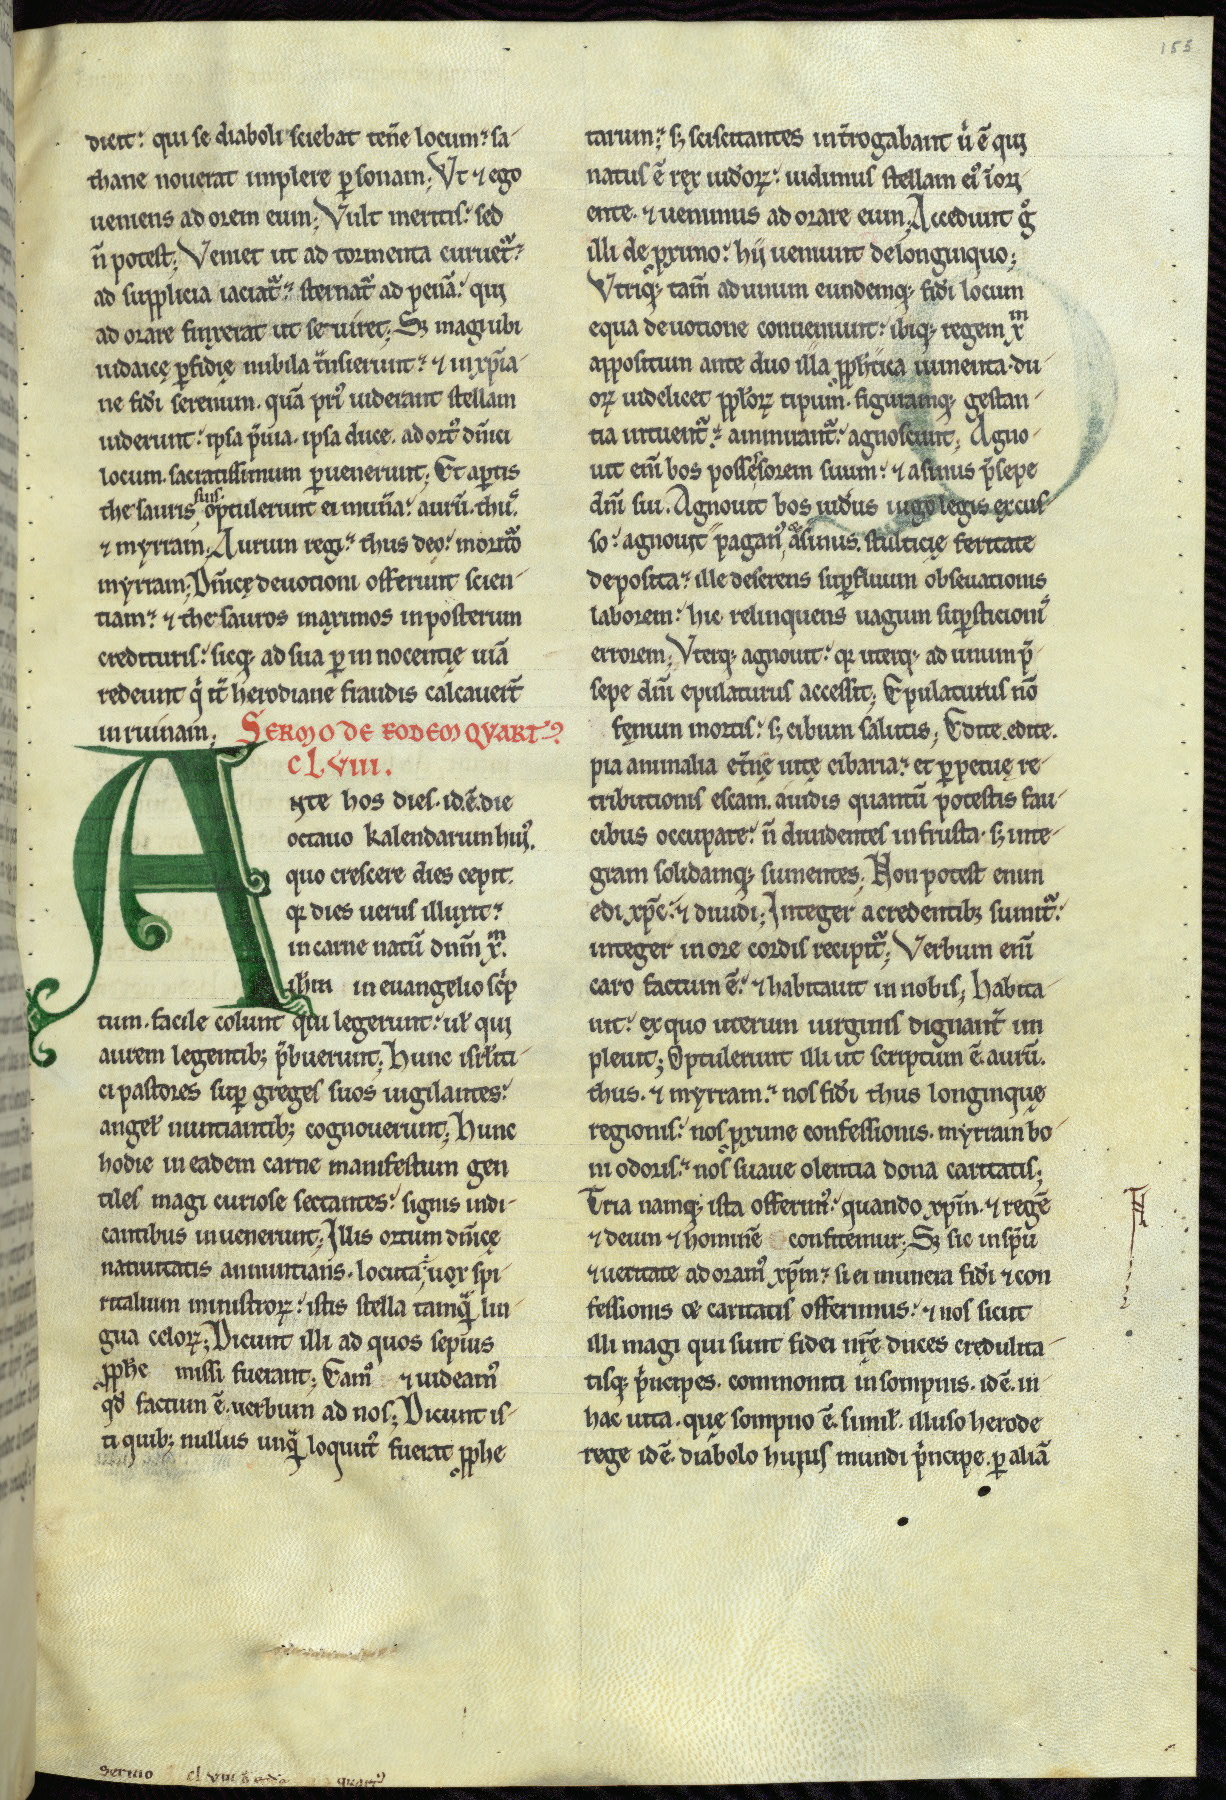 155
dicit: qui se diaboli sciebat ten̄e locum: sa-
thane nouerat implere ꝑsonam; Vt ⁊ ego
ueniens adorem eum; Vult mentiri: sed
n̄ potest; Veniet ut ad tormenta curuet᷑:
ad supplicia iaciat᷑: sternat᷑ ad penā: qui
adorare finxerat ut seuiret; Sꝫ magi ubi
iudaicę ꝑfidię nubila t̄nsierunt: ⁊ in xp̄ia-
ne fidi serenum. quā pri᷒ uiderant stellam
uiderunt: ipsa p̄uia. ipsa duce. ad ort᷒ dn̄ici
locum sacratissimum ꝑuenerunt; Et aꝑtis
thesauris suis optulerunt ei mun̄a: aurū. thu᷒.
⁊ myrram; Aurum regi: thus deo: mortuo
myrram; Dn̄icę deuotioni offerunt scien-
tiam: ⁊ thesauros maximos in posterum
credituris: sicqꝫ ad sua ꝑ innocentię uiā
redeunt q̇ it̄ herodiane fraudis calcauer̄t
in ruinam; SERMO DE EODEM QVART᷒
CLVIII.
ANte hos dies. id.ē. die
octauo kalendarum hui᷒.
quo crescere dies cepit.
qꝛ dies uerus illuxit:
in carne natū dnm̄ xm̄.
ih̄m in euangelio sc̓p
tum. facile colunt qui legerunt: uł qui
aurem legentibꝫ p̄buerunt; Hunc isrl̄iti-
ci pastores suꝑ greges suos uigilantes:
angeł nuntiantibꝫ cognouerunt; Hunc
hodie in eadem carne manifestum gen
tiles magi curiose sectantes: signis indi-
cantibus inuenerunt; Illis ortum dn̄icę
natiuitatis annuntians. locuta ē uox spi-
ritalium ministroꝝ: istis stella tamq̄ lin-
gua celoꝝ; Dicunt illi ad quos sepius
ꝓphe missi fuerant; Eam᷒ ⁊ uideam᷒
qd̄ factum ē. uerbum ad nos; Dicunt is-
ti quibꝫ nullus unq̄ loquut᷒ fuerat ꝓphe
tarum: sꝫ sciscitantes int̄rogabant u̓ ē qui
natus ē rex iud̓oꝝ: uidimus stellam ei᷒ ī ori
ente. ⁊ uenimus adorare eum; Accedunt g̊
illi de ꝓximo: hii ueniunt de longinquo;
Vtriqꝫ tam̄ ad unum eundemqꝫ fidi locum
equa deuotione conueniunt: ibiqꝫ regem xm̄
appositum ante duo illa ꝓphetica iumenta. du
oꝝ uidelicet ꝓpl̄oꝝ tipum figuramqꝫ gestan-
tia intuent᷑: ammirant᷑: agnoscunt; Agno-
uit eni̅ bos possessorem suum: ⁊ asinus p̄sepe
dn̄i sui. Agnouit bos iud̓us iugo legis excus-
so: agnouit pagan᷒ asinus. stulticię feritate
deposita: ille deserens suꝑfluum obseruationis
laborem: hic relinquens uagum suꝑsticionis
errorem; Vterqꝫ agnouit: qꝛ uterqꝫ ad unum p̄-
sepe dn̄i epulaturus accessit; Epulaturus nō
fęnum mortis: sꝫ cibum salutis; Edite. edite.
pia animalia et̄nę uitę cibaria: et ꝑpetuę re-
tributionis escam. auidis quantū potestis fau-
cibus occupate: n̄ diuidentes in frusta. sꝫ inte-
gram solidamqꝫ sumentes; Non potest enim
edi xp̄c: ⁊ diuidi; Integer a credentibꝫ sumit᷑:
integer in ore cordis recipit᷑; Verbum eni̅
caro factum ē: ⁊ habitauit in nobis; Habita-
uit: ex quo uterum uirginis dignant̄ im
pleuit; Optulerunt illi ut scriptum ē. aurū.
thus. ⁊ myrram: nos fidi thus longinquę
regionis: nos ꝓxime confessionis. myrram bo-
ni odoris: nos suaue olentia dona caritatis;
Tria namqꝫ ista offerim᷒: quando xp̄m. ⁊ regē
⁊ deum ⁊ hominē confitemur; Sꝫ sic in sp̄u
⁊ ueritate adoram᷒ xp̄m: si ei munera fidi ⁊ con
fessionis ac caritatis offerimus: ⁊ nos sicut
illi magi qui sunt fidei nr̄e duces credulita-
tisqꝫ p̄ncipes. commoniti in sompnis. id ē. in
hac uita. quę sompno ē. simił. illuso herode
rege id ē. diabolo huius mundi p̄ncipe. ꝑ aliā
sermo clviii quart᷒